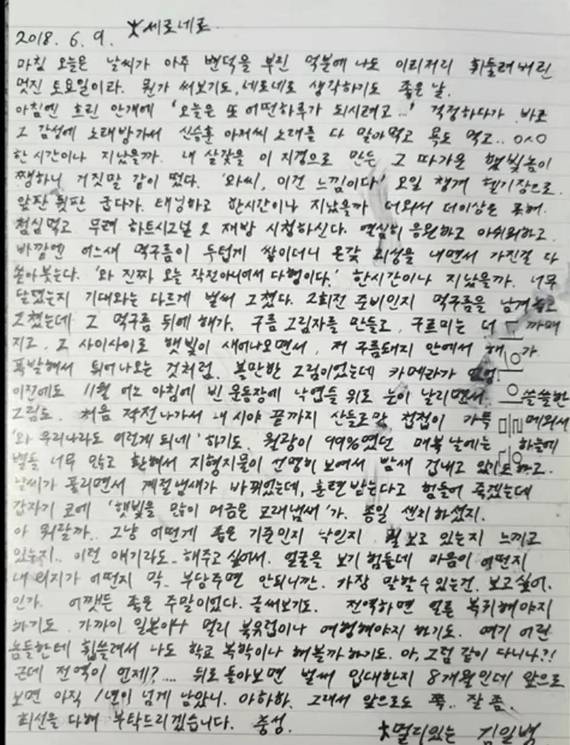 2018. 6. 9. ☆세로네로
마침 오늘은 날씨가 아주 변덕을 부린 덕분에 나도 이리저리 휘둘려버린
멋진 토요일이라. 뭔가 써보기도, 세로네로 생각하기도 좋은 날.
아침엔 흐린 안개에 '오늘은 또 어떤하루가 되시려고...' 걱정하다가 바로
그 감성에 노래방가서 신승훈 아저씨 노래를 다 말아먹고 욕도 먹고.. ㅇㅅㅇ
한시간이나 지났을까. 내 살갗을 이 지경으로 만든 그 따가운 햇빛놈이
쨍하니 거짓말 같이 떴다. '와씨, 이건 느낌이다' 오일 챙겨 헬기장으로.
앞판 뒷판 굽다가. 태닝하고 한시간이나 지났을까 더워서 더이상은 못해.
점심먹고 무려 하트시그널 2 재방 시청하신다. 열심히 응원하고 아쉬워하고.
바깥엔 어느새 먹구름이 두텁게 쌓이더니 온갖 괴성을 내면서 가진걸 다
쏟아붓는다. '와 진짜 오늘 작전아니여서 다행이다.' 한시간이나 지났을까. 너무
달렸는지 기대와는 다르게 벌써 그쳤다. 2회전 준비인지 먹구름을 남겨놓고
그쳤는데 그 먹구름 뒤에 해가. 구름 그림자를 만들고, 구르미는 더 까매
지고, 그 사이사이로 햇빛이 새어나오면서, 저 구름돼지 안에서 해가
폭발해서 튀어나오는 것처럼. 볼만한 그림이었는데 카메라가 없어
이전에도 11월 어느 아침에 빈 운동장에 낙엽들 위로 눈이 날리면서 쓸쓸한
그림도. 처음 작전나가서 내 시야 끝까지 산들로만 첩첩이 가득 메워서
'와 우리나라도 이렇게 되네' 하기도. 월광이 99%였던 매복날에는 하늘에
별들 너무 많고 환해서 지형지물이 선명히 보여서 밤새 겁내고 있기도하고.
날씨가 풀리면서 계절냄새가 바뀌었는데, 훈련받는다고 힘들어 죽겠는데
갑자기 코에 '햇빛을 많이 머금은 모래냄새'가. 종일 센치하셨지.
아 뭐랄까.. 그냥 어떻게 좋은 기준인지 낙인지 뭘 보고 있는지 느끼고
있는지.. 이런 얘기라도.. 해주고 싶어서. 얼굴을 보기 힘든데 마음이 어떤지
내 의지가 어떤지 막.. 부담주면 안되니깐. 가장 말할수 있는건. 보고싶어.
인가. 어쨌든 좋은 주말이었다. 글써보기도. 전역하면 얼른 복귀해야지
하기도. 가까이 일본이나 멀리 북유럽이나 여행해야지 하기도. 여기 어린
놈들한테 휩쓸려서 나도 학교 복학이나 해볼까하기도. 아, 그럼 같이 다니나?!
근데 전역이 언제?.... 뒤로 돌아보면 벌써 입대한지 8개월인데 앞으로
보면 아직 1년이 넘게 남았니. 아하하. 그래서 앞으로도 쭉.. 잘 좀.
최선을 다해 부탁드리겠습니다. 충성.
☆멀리있는 김일백